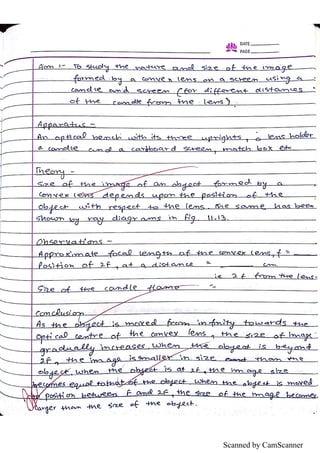 DATE
PAGE
Aim :- To study the nature and size of the image
formed by a convex lens on a screen using a
candle and screen (for different distances
of the candle from the lens).
Apparatus -
An optical bench with its three uprights, a lens holder
a candle and a cardboard screen, match box etc.
Theory -
Size of the image of an object formed by a
convex lens depends upon the position of the
object with respect to the lens. The same has been
shown by ray diagrams in fig. 11.13.
Observations -
Approximate focal length of the convex lens, f =
Position of 2F, at a distance = cm
ie 2f from the lens.
Size of the candle flame =
Conclusion
As the object is moved from infinity towards the
optical centre of the convex lens, the size of image
gradually increases. When the object is beyond
2F, the image is smaller in size than the
object. When the object is at 2F, the image size
becomes equal to that of the object. When the object is moved
position between F and 2F, the size of the image becomes
larger than the size of the object.
Scanned by CamScanner